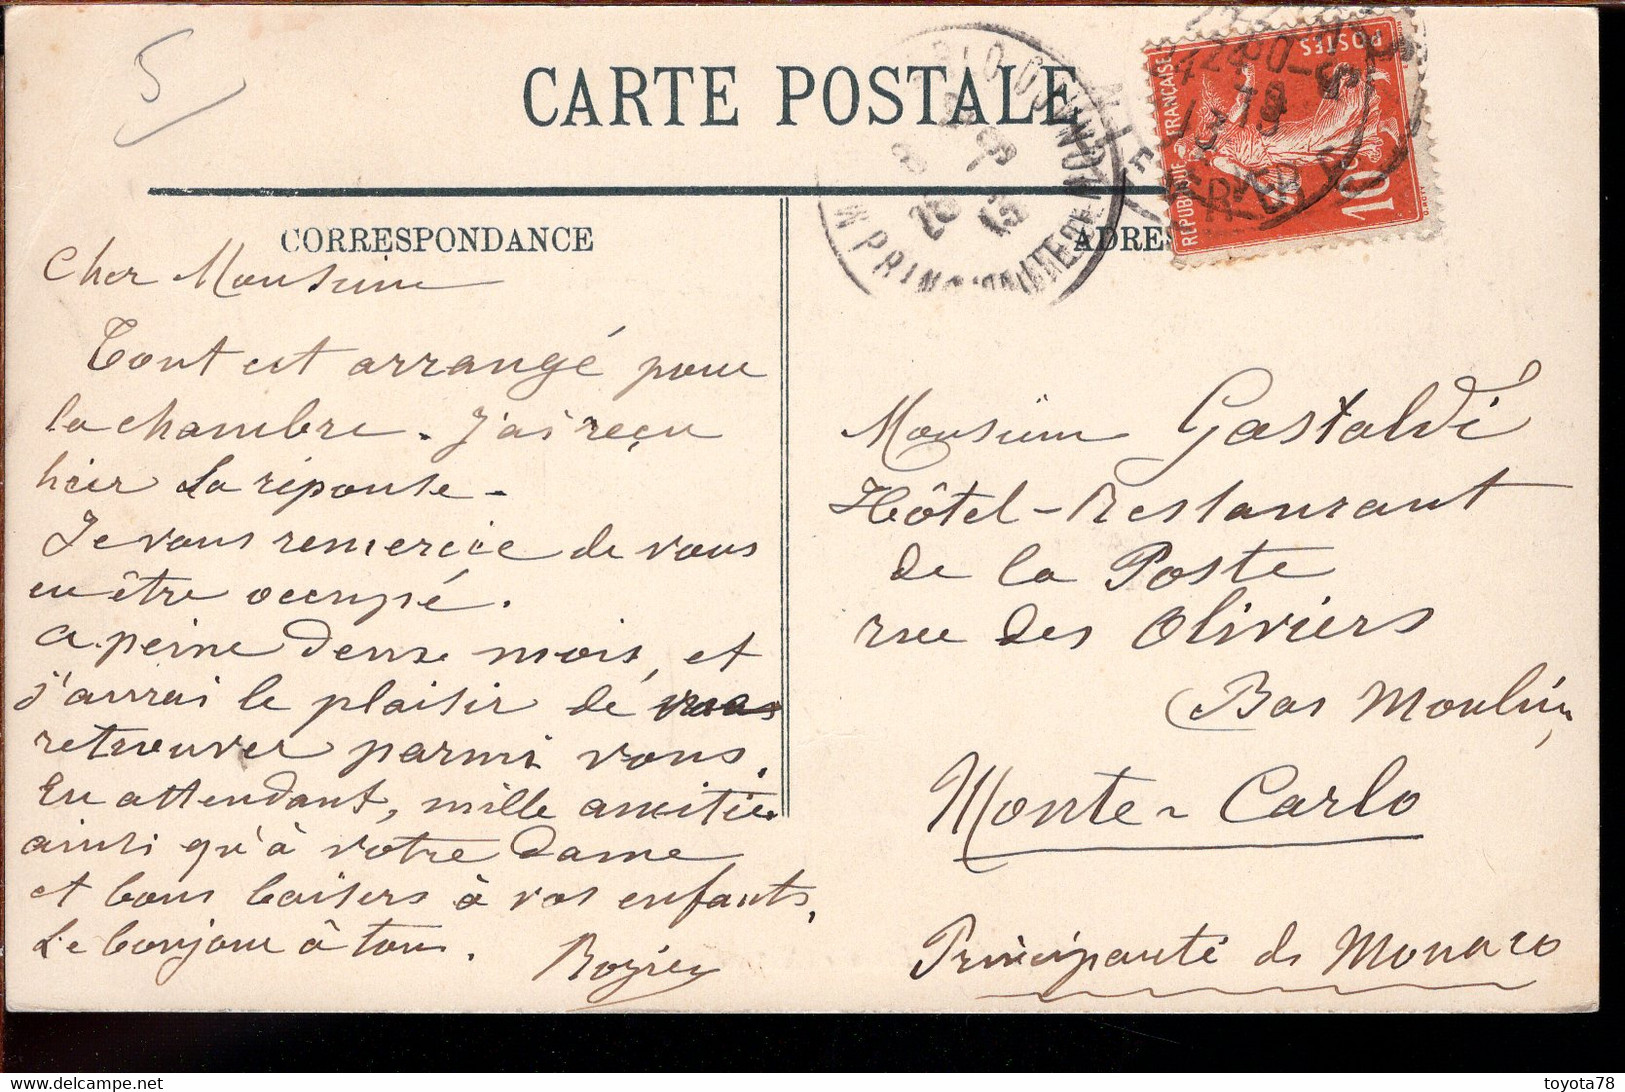 5
CARTE POSTALE
CORRESPONDANCE
Cher Monsieur
Tout est arrangé pour
la chambre. J'ai reçu
hier la réponse -
Je vous remercie de vous
en être occupé.
a peine deux mois, et
j'aurai le plaisir de
retrouver parmi vous.
En attendant, mille amitiés
ainsi qu'à votre dame
et bons baisers à vos enfants.
Le bonjour à tous.
Rozier
ADRES
REPUBLIQUE FRANÇAISE
POSTES
10
Monsieur Gastaldi
Hôtel-Restaurant
de la Poste
rue des Oliviers
(Bas Moulin,
Monte-Carlo
Principauté de Monaco
toyota78